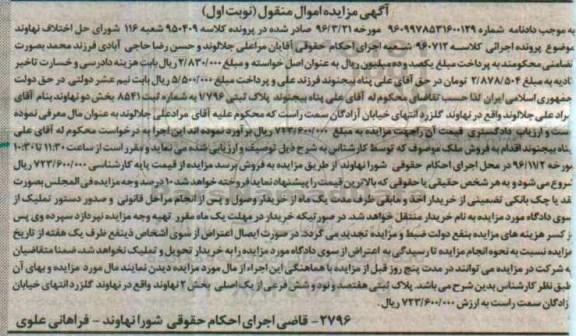 آگهی مزایده اموال منقول (نوبت اول)
به موجب دادنامه شماره ۹۶۰۹۹۷۸۵۳۱۶۰۰۱۲۹ مورخه ۹۶/۳/۲۱ صادر شده در پرونده کلاسه ۹۵۰۴۰۹ شعبه ۱۱۶ شورای حل اختلاف نهاوند
موضوع پرونده اجرائی کلاسه ۹۶۰۷۱۳ شعبه اجرای احکام حقوقی آقایان مرادعلی جلالوند و حسن رضا حاجی آبادی فرزند محمد بصورت
تضامنی محکومند به پرداخت مبلغ یکصد و ده میلیون ریال به عنوان اصل خواسته و مبلغ ۲/۸۳۰/۰۰۰ ریال بابت هزینه دادرسی و خسارت تاخیر
تادیه به مبلغ ۲/۸۷۸/۵۰۴ تومان در حق آقای علی پناه بیجنوند فرزند علی و پرداخت مبلغ ۵/۵۰۰/۰۰۰ ریال بابت نیم عشر دولتی در حق دولت
جمهوری اسلامی ایران لذا حسب تقاضای محکوم له آقای علی پناه بیجنوند پلاک ثبتی ۷۷۹۶ به شماره ثبت ۸۵۴۱ بخش دو نهاوند بنام آقای
مراد علی جلالوند واقع در نهاوند گلزرد انتهای خیابان آزادگان سمت راست که محکوم علیه آقای مرادعلی جلالوند به عنوان مال معرفی نموده
است و ارزیاب دادگستری قیمت آن را جهت مزایده به مبلغ ۷۲۳/۶۰۰/۰۰۰ ریال برآورد نموده اند این اجرا به درخواست محکوم له آقای علی
پناه بیجنوند اقدام به فروش ملک موصوف که توسط کارشناس به شرح ذیل توصیف و ارزیابی شده می نماید و مقرر است از ساعت ۱۱:۳۰ تا ۱۰:۳۰
مورخه ۹۶/۱۱/۲ در محل اجرای احکام حقوقی شورا نهاوند از طریق مزایده به فروش برسد مزایده از قیمت پایه کارشناسی ۷۲۳/۶۰۰/۰۰۰ ریال
شروع می شود و به هر شخص حقیقی یا حقوقی که بالاترین قیمت را پیشنهاد نماید فروخته خواهد شد ۱۰ درصد وجه مزایده فی المجلس بصورت
نقد یا چک بانکی تضمینی از خریدار اخذ و مابقی ظرف مدت یک ماه از خریدار وصول و پس از انجام مراحل قانونی و صدور دستور تملیک از
سوی دادگاه مورد مزایده به نام خریدار منتقل خواهد شد. در صورتیکه خریدار در مهلت یک ماه مقرر تهیه وجه مزایده نپردازد سپرده وی پس
از کسر هزینه های مزایده بنفع دولت ضبط و مزایده تجدید می گردد. در صورت ایصال اعتراض از سوی اشخاص ذینفع ظرف یک هفته از تاریخ
مزایده نسبت به نحوه انجام مزایده تا رسیدگی به اعتراض از سوی دادگاه مورد مزایده را به خریدار تحویل و تملیک نخواهد شد. ضمنا متقاضیان
به شرکت در مزایده می توانند در مدت پنج روز قبل از مزایده با هماهنگی این اجراء از مال مورد مزایده دیدن نمایند مال مورد مزایده و بهای آن
طبق نظر کارشناس بدین شرح می باشد. پلاک ثبتی هفتصد و نود و شش فرعی از یک اصلی بخش ۲ نهاوند واقع در نهاوند گلزرد انتهای خیابان
آزادگان سمت راست به ارزش ۷۲۳/۶۰۰/۰۰۰ ریال.
۲۷۹۶- قاضی اجرای احکام حقوقی شورا نهاوند - فراهانی علوی